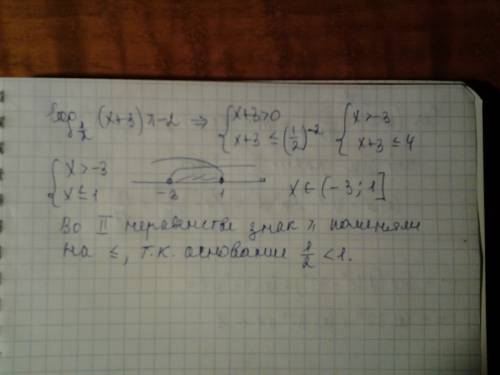 log_{1/2} (x+3) ≥ -2 ⇒ { x+3>0 ; x+3 ≤ (1/2)^{-2} { x>-3 ; x+3 ≤ 4
{ x>-3 ; x≤1 -3 1 x ∈ (-3; 1]
Во II неравенстве знак ≥ поменяли
на ≤, т.к. основание 1/2 < 1.